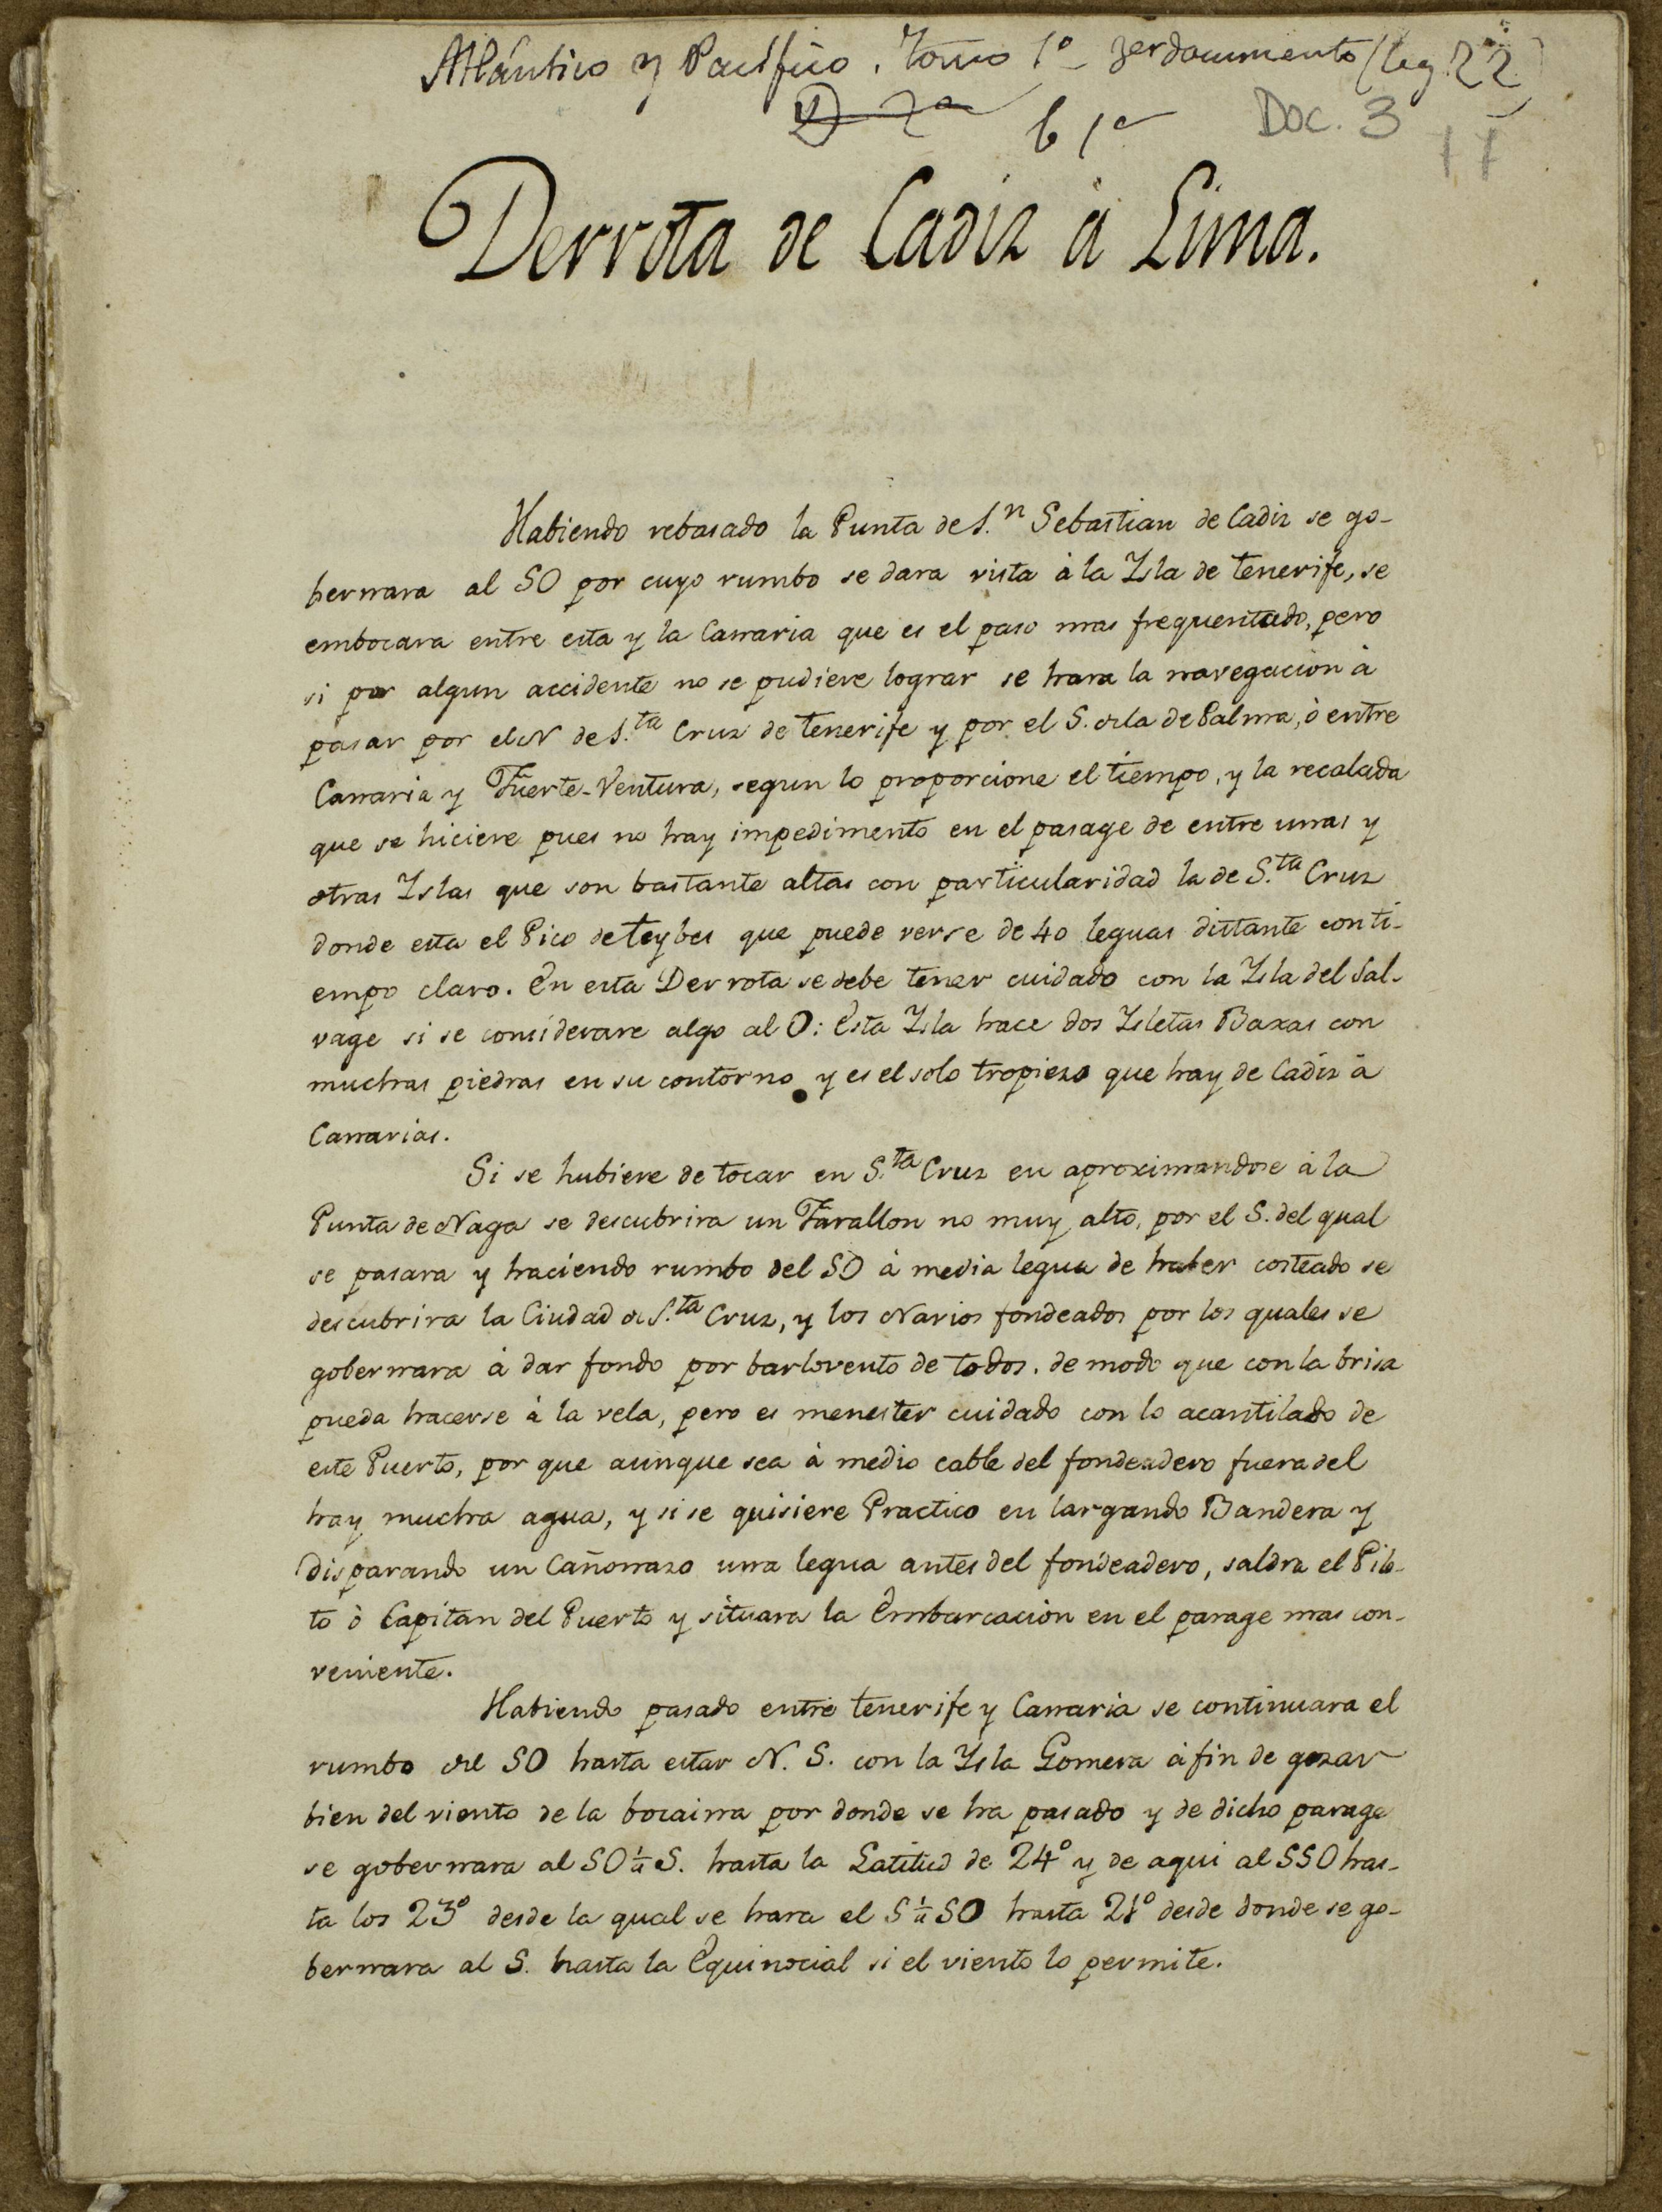 Atlántico y Pacífico. Tomo 1º 3er documento (leg. 22)
b 1ª Doc. 3
17
Derrota de Cadiz à Lima.
Habiendo rebasado la Punta de S.n Sebastian de Cadiz se go-
bernara al SO por cuyo rumbo se dara vista à la Isla de Tenerife, se
embocara entre esta y la Canaria que es el paso mas frequentado, pero
si por algun accidente no se pudiere lograr se hara la navegacion à
pasar por el N de S.ta Cruz de Tenerife y por el S. de la de Palma, ò entre
Canaria y Fuerte-Ventura, segun lo proporcione el tiempo, y la recalada
que se hiciere pues no hay impedimento en el pasage de entre unas y
otras Islas que son bastante altas con particularidad la de S.ta Cruz
donde esta el Pico de Teybes que puede verse de 40 leguas distante con ti-
empo claro. En esta Derrota se debe tener cuidado con la Isla del Sal-
vage si se considerare algo al O: Esta Isla hace dos Isletas Baxas con
muchas piedras en su contorno y es el solo tropiezo que hay de Cadiz à
Canarias.
Si se hubiere de tocar en S.ta Cruz en aproximandose à la
Punta de Naga se descubrira un Farallon no muy alto, por el S. del qual
se pasara y haciendo rumbo del SO à media legua de haber costeado se
descubrira la Ciudad de S.ta Cruz, y los Navios fondeados por los quales se
gobernara à dar fondo por barlovento de todos. de modo que con la brisa
pueda hacerse à la vela, pero es menester cuidado con lo acantilado de
este Puerto, por que aunque sea à medio cable del fondeadero fuera del
hay mucha agua, y si se quisiere Practico en largando Bandera y
disparando un Cañonazo una legua antes del fondeadero, saldra el Pilo-
to ò Capitan del Puerto y situara la Embarcacion en el parage mas con-
veniente.
Habiendo pasado entre Tenerife y Canaria se continuara el
rumbo del SO hasta estar N. S. con la Isla Gomera à fin de gozar
bien del viento de la bocaina por donde se ha pasado y de dicho parage
se gobernara al SO¼S. hasta la Latitud de 24º y de aqui al SSO has-
ta los 23º desde la qual se hara el S¼SO hasta 21º desde donde se go-
bernara al S. hasta la Equinocial si el viento lo permite.